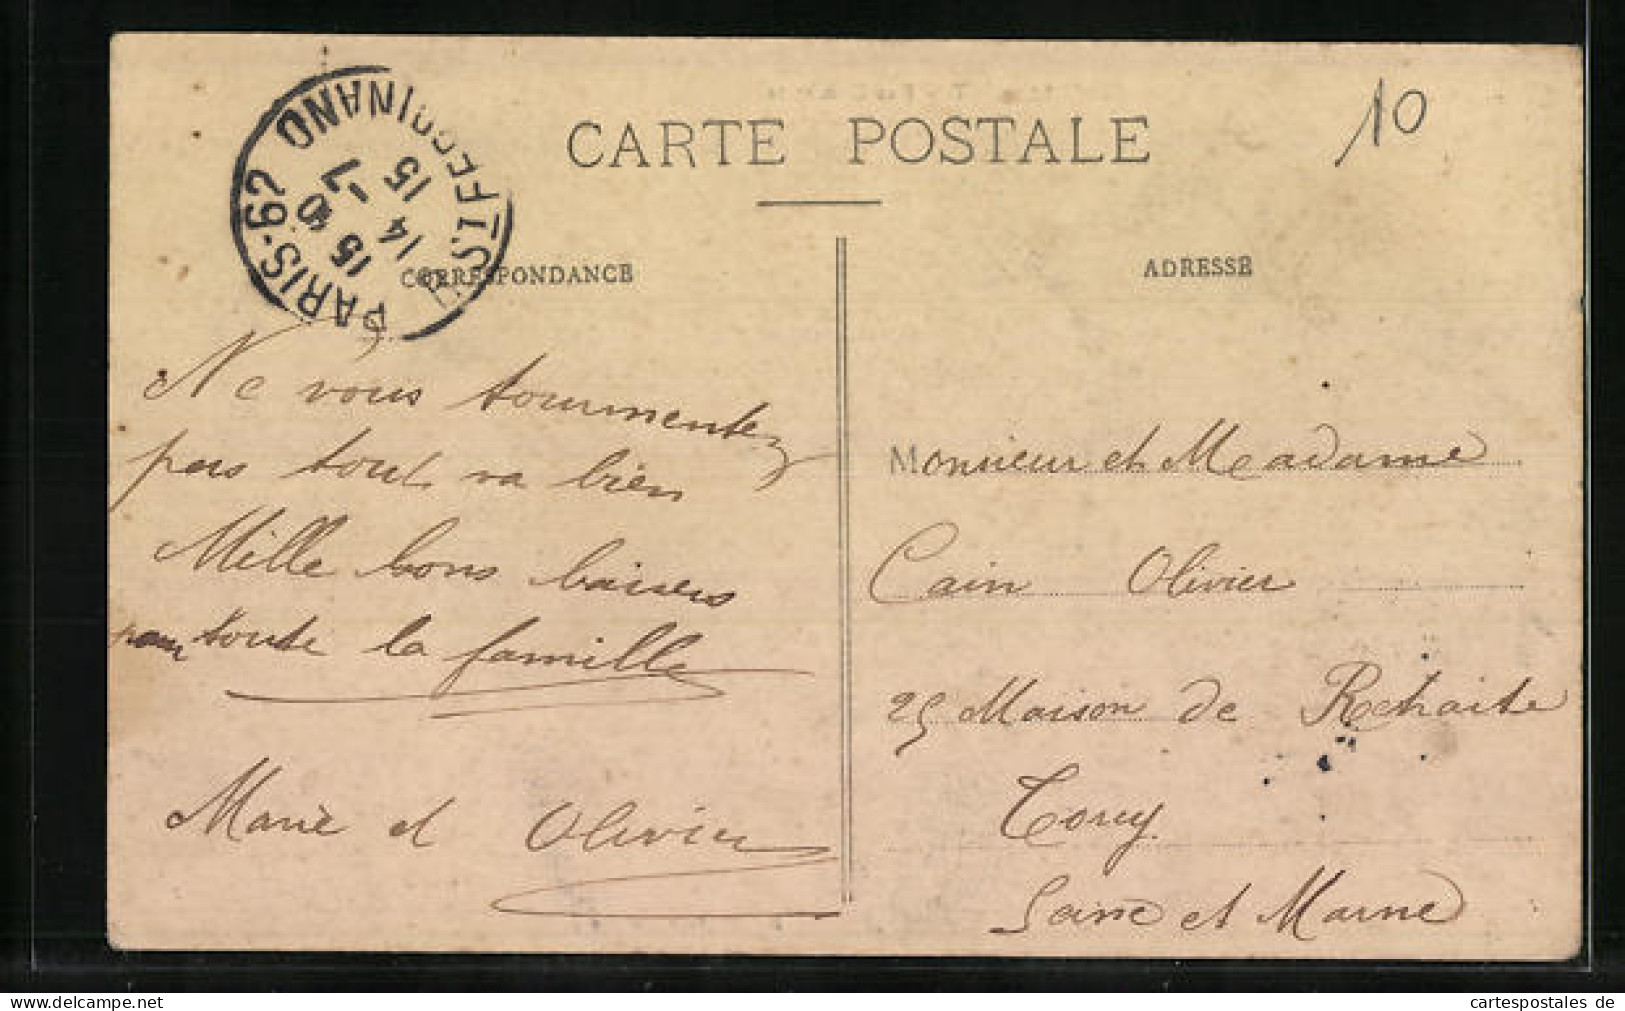 CARTE POSTALE
10
PARIS-62
15 40
14 -7
15
CORRESPONDANCE
ADRESSE
Ne vous tourmentez
pas tout va bien
Mille bons baisers
pour toute la famille
Marie et Olivier
Monsieur et Madame
Cain Olivier
25 Maison de Retraite
Torcy
Seine et Marne
cartespostales de